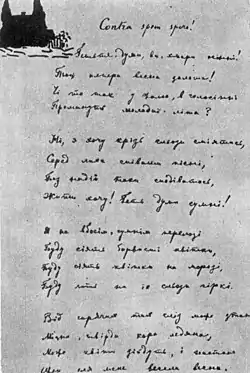 Contra spem spero!
Гетьте, думи, ви, хмари осінні!
Тож тепера весна золота!
Чи то так у жалю, в голосінні
Проминуть молодії літа?
Ні, я хочу крізь сльози сміятись,
Серед лиха співати пісні,
Без надії таки сподіватись,
Жити хочу! Геть думи сумні!
Я на вбогім, сумнім перелозі
Буду сіять барвисті квітки,
Буду сіять квітки на морозі,
Буду лить на їх сльози гіркі.
Від гарячих тих сліз може
Міцна, твірда кора
Може квіти зійдуть, і настане
Ще й для мене весела весна.